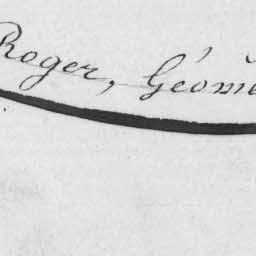 Roger, Géomè